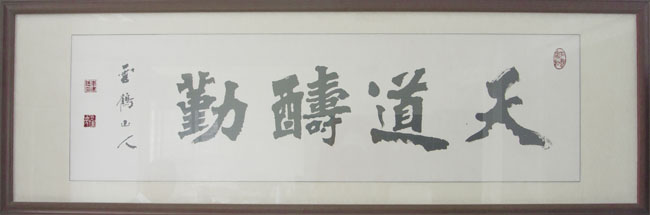 天道醻勤
雲鶴山人